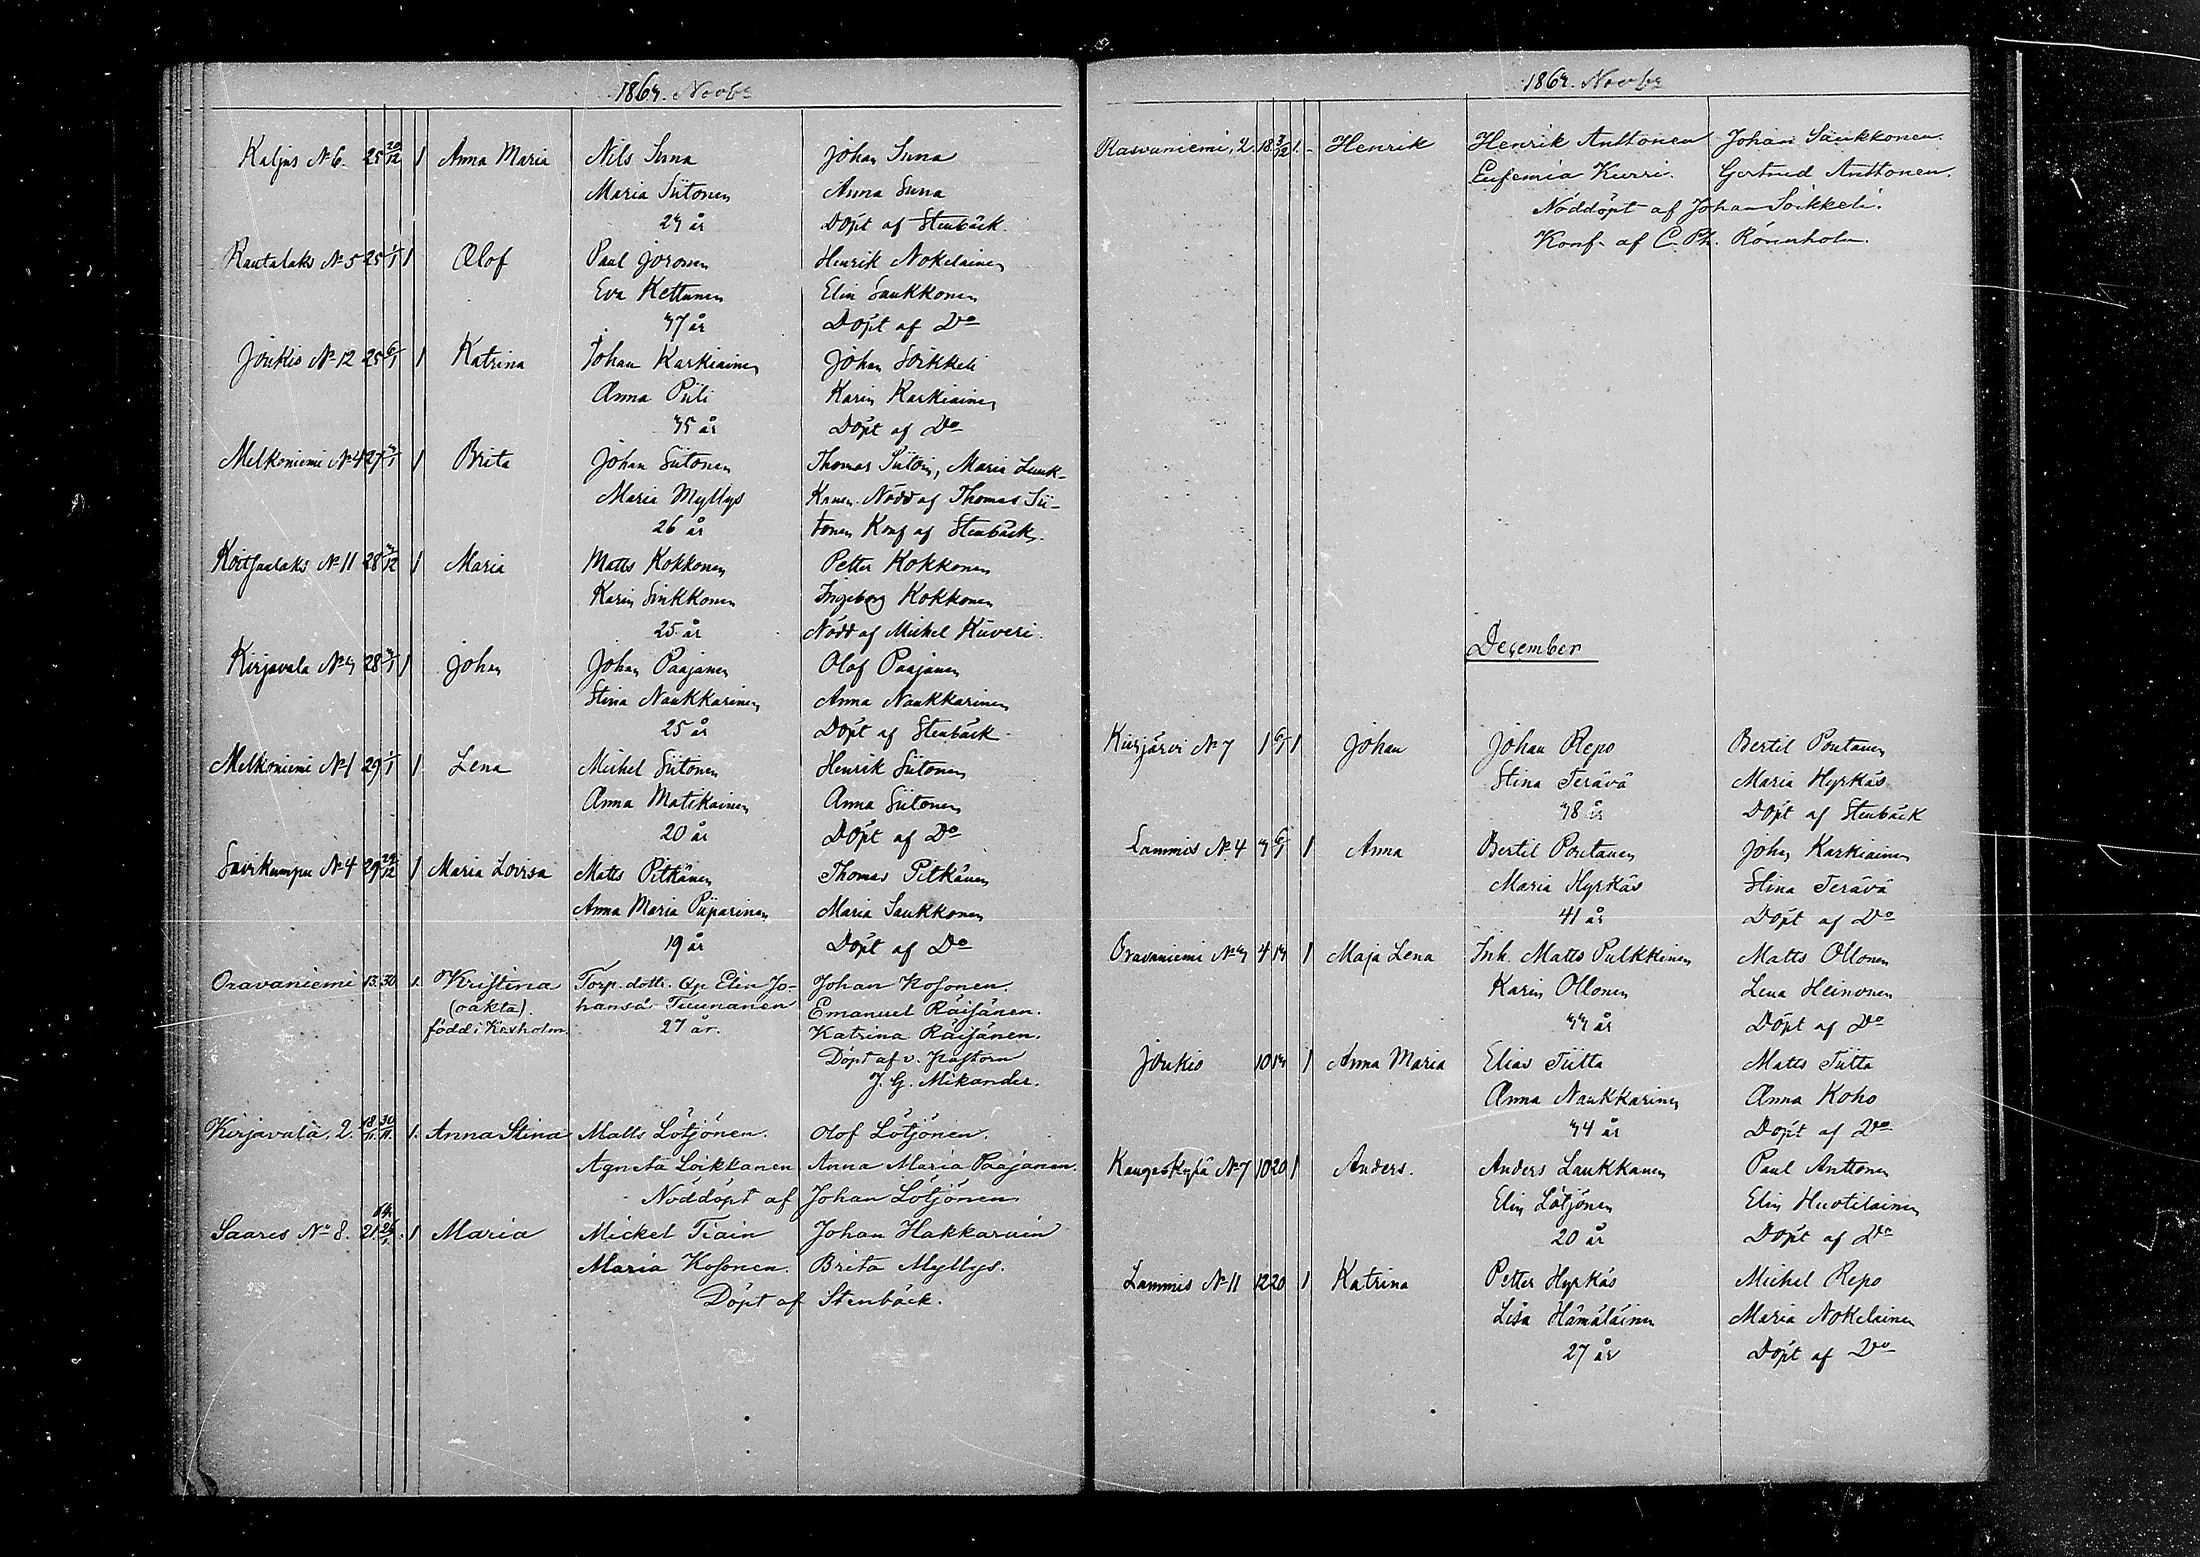 1863. Novbr
Kaljus No 6. 25 20/12 1 Anna Maria Nils Suna Johan Suna
Maria Siitonen Anna Suna
23 år Döpt af Stenbäck.
Rautalaks No 5 25 1/1 1 Olof Paul Joronen Henrik Nokelainen
Eva Kettunen Elin Saukkonen
37 år Döpt af Do
Joukio No 12 25 6/1 1 Katrina Johan Karkiainen Johan Soikkeli
Anna Piili Karin Karkiainen
35 år Döpt af Do
Melkoniemi No 4 27 3/1 1 Brita Johan Siitonen Thomas Siitoin, Maria Luuk-
Maria Myllys kanen. Nödd af Thomas Sii-
26 år tonen Konf af Stenbäck.
Koitsanlaks No 11 28 3/12 1 Maria Matts Kokkonen Petter Kokkonen
Karin Sinkkonen Ingeborg Kokkonen
25 år Nödd af Michel Kuveri.
Kirjavala No 3 28 3/1 1 Johan Johan Paajanen Olof Paajanen
Stina Naukkarinen Anna Naukkarinen
25 år Döpt af Stenbäck.
Melkoniemi No 1 29 1/1 1 Lena Michel Siitonen Henrik Siitonen
Anna Matikainen Anna Siitonen
20 år Döpt af Do
Savikumpu No 4 29 29/12 1 Maria Lovisa Matts Pitkänen Thomas Pitkänen
Anna Maria Piiparinen Maria Saukkonen
19 år Döpt af Do
Oravaniemi 13. 30 1. Kristina Torp. dottr. Qp. Elin Jo- Johan Kosonen.
(oäkta). hansdr Tiunanen Emanuel Räisänen.
född i Kexholm. 27 år. Katrina Räisänen.
Döpt af v. pastorn
J. G. Mikander.
Kirjavala, 2. 18/11. 30/11. 1. Anna Stina Matts Lötjönen. Olof Lötjönen.
Agneta Loikkanen Anna Maria Paajanen.
Nöddöpt af Johan Lötjönen
Saares No 8. 21 1 Maria Mickel Tiain Johan Hakkarain
Maria Kosonen. Brita Myllys.
Döpt af Stenbäck.
1863. Novbr
Rasvaniemi, 2. 18. 3/12 1. Henrik Henrik Anttonen Johan Saukkonen.
Eufemia Kurri. Gertrud Anttonen.
Nöddöpt af Johan Soikkeli.
Konf. af C. Ph. Rönnholm.
December
Kiurjärvi No 7 1 6/1 1 Johan Johan Repo Bertil Pontanen
Stina Terävä Maria Hyrkäs
38 år Döpt af Stenbäck
Lammis No 4 3 6/1 1 Anna Bertil Pontanen Johan Karkiainen
Maria Hyrkäs Stina Terävä
41 år Döpt af Do
Oravaniemi No 3 4 13 1 Maja Lena Inh. Matts Pulkkinen Matts Ollonen
Karin Ollonen Lena Heinonen
33 år Döpt af Do
Joukio 10 13 1 Anna Maria Elias Tiitta Matts Tiitta
Anna Naukkarinen Anna Koho
34 år Döpt af Do
Kangaskylä No 7 10 20 1 Anders. Anders Laukkanen Paul Anttonen
Elin Lötjönen Elin Huotilainen
20 år Döpt af Do
Lammis No 11 12 20 1 Katrina Petter Hyrkäs Michel Repo
Lisa Hämäläinen Maria Nokelainen
27 år Döpt af Do